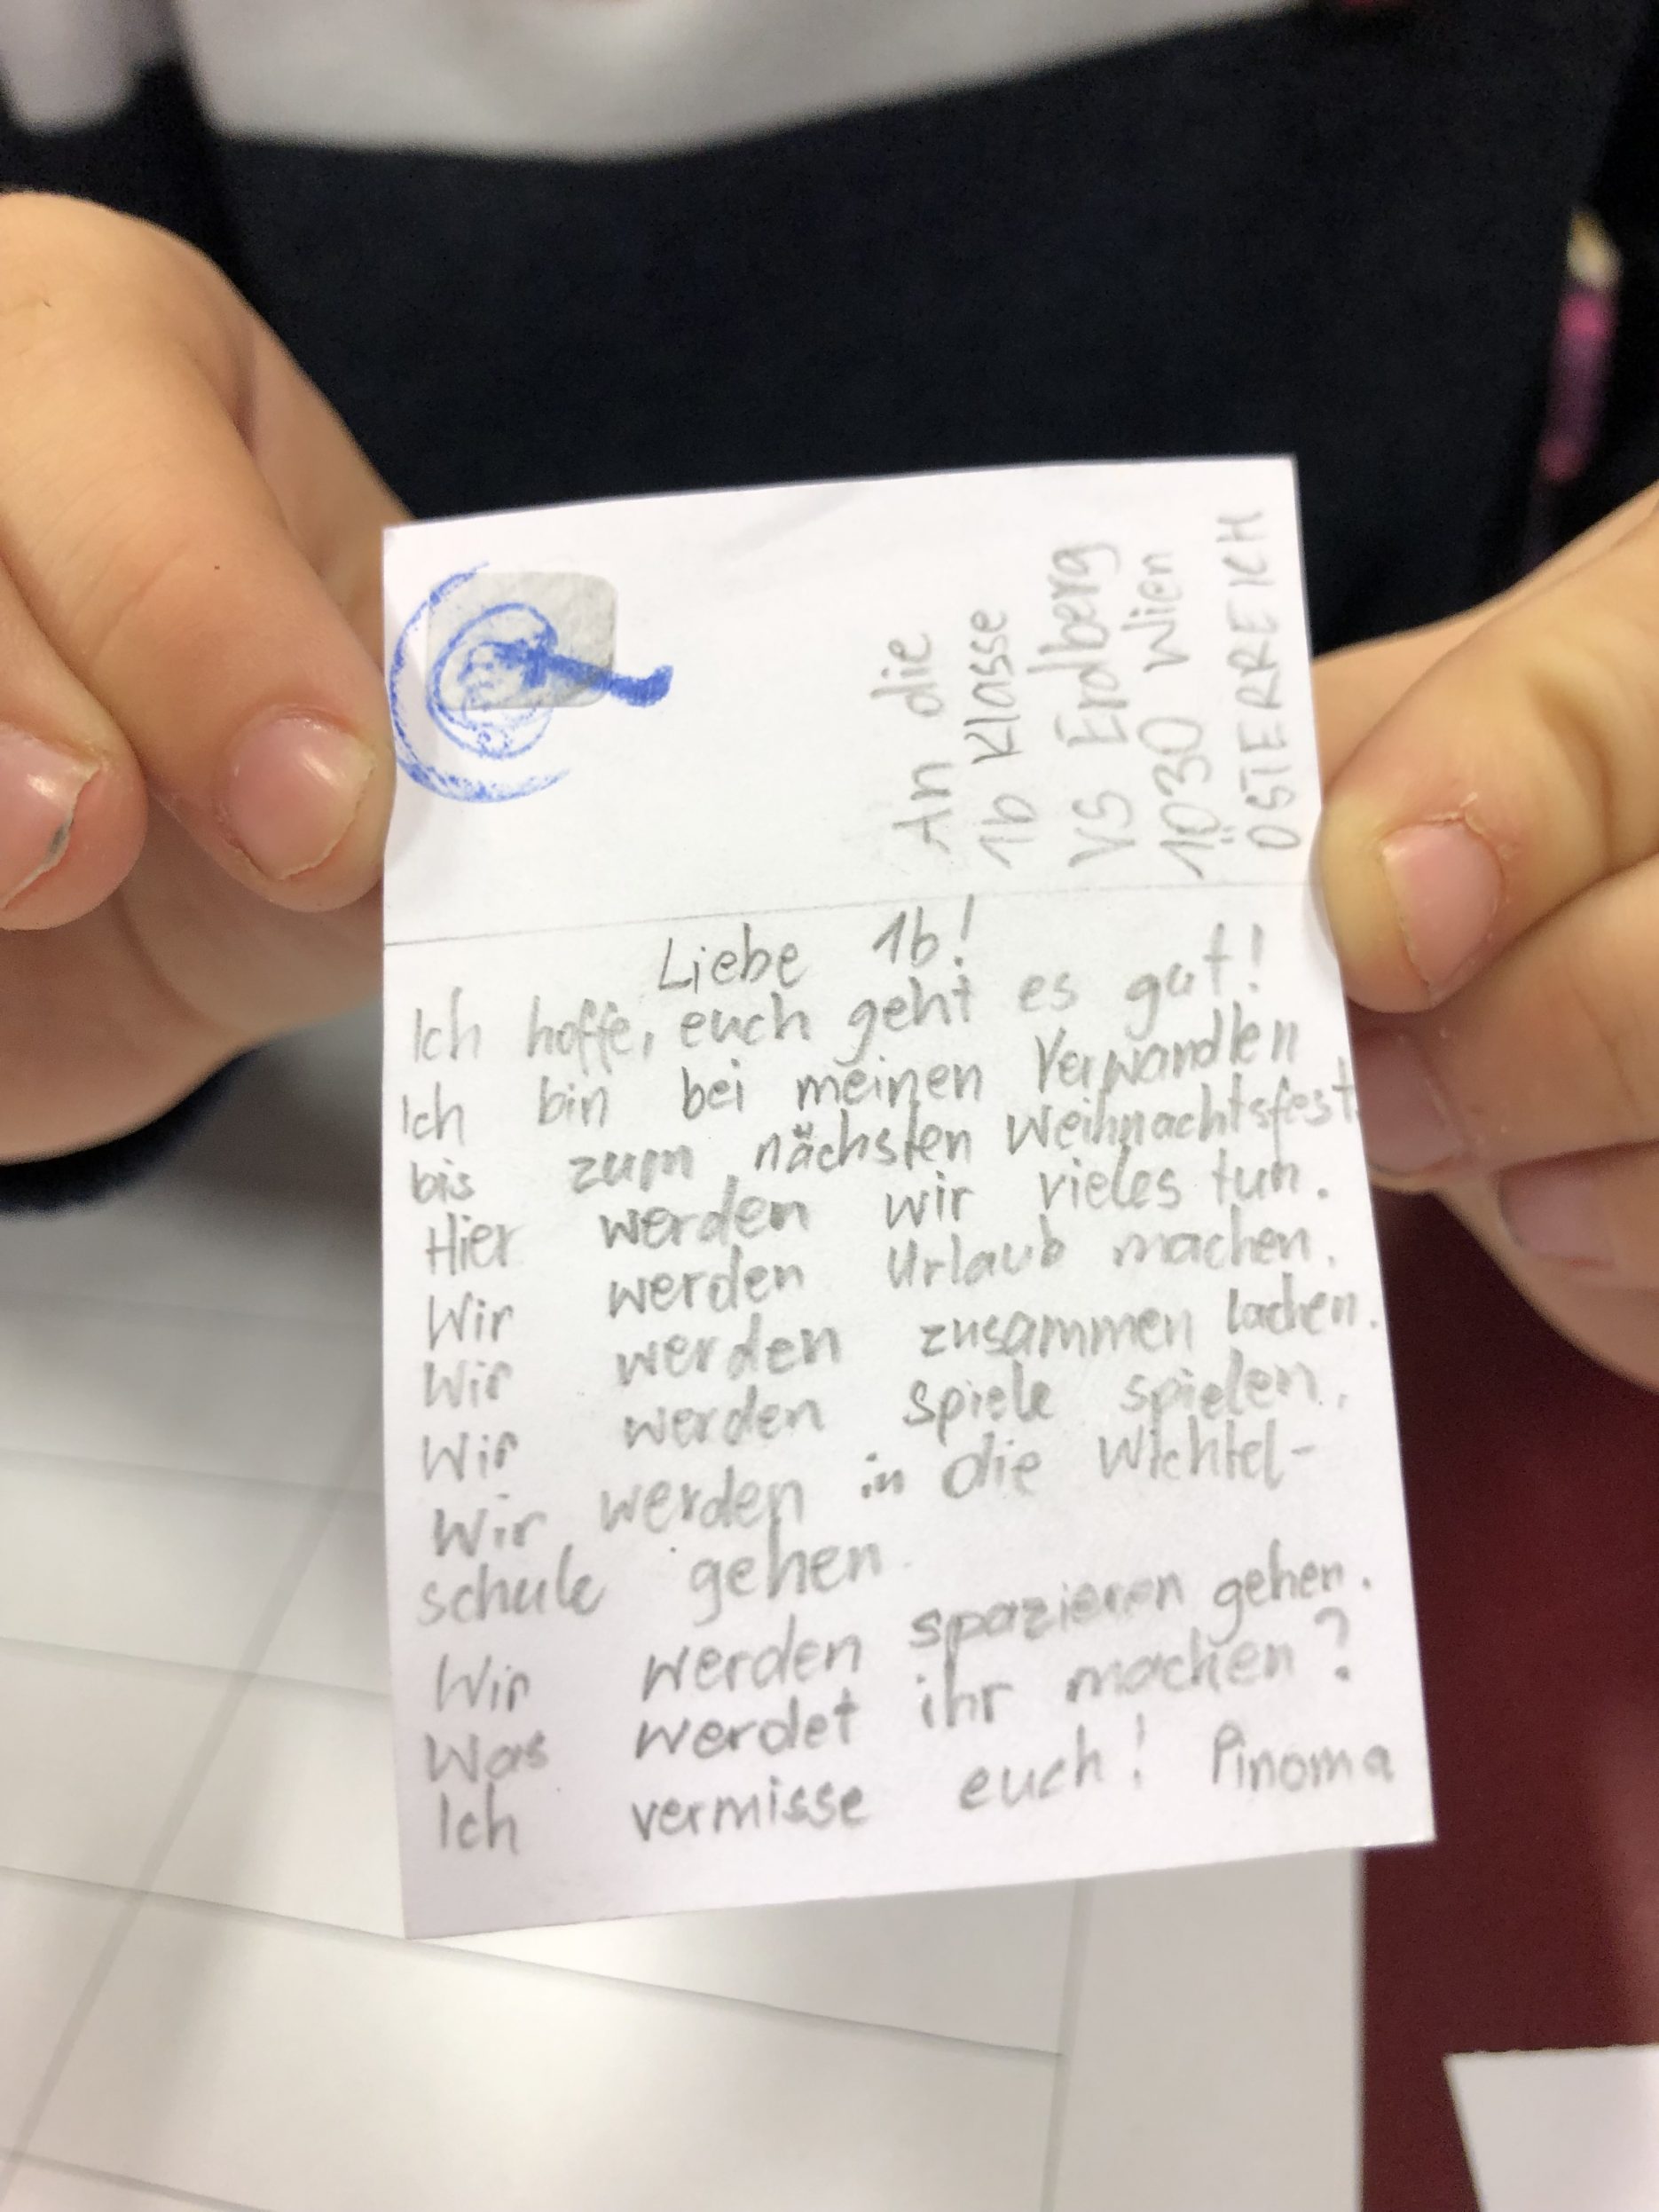 An die
1b Klasse
VS Erdberg
1030 Wien
ÖSTERREICH
Liebe 1b!
Ich hoffe, euch geht es gut!
Ich bin bei meinen Verwandten
bis zum nächsten Weihnachtsfest.
Hier werden wir vieles tun.
Wir werden Urlaub machen.
Wir werden zusammen lachen.
Wir werden Spiele spielen.
Wir werden in die Wichtel-
schule gehen.
Wir werden spazieren gehen.
Was werdet ihr machen?
Ich vermisse euch! Pinoma